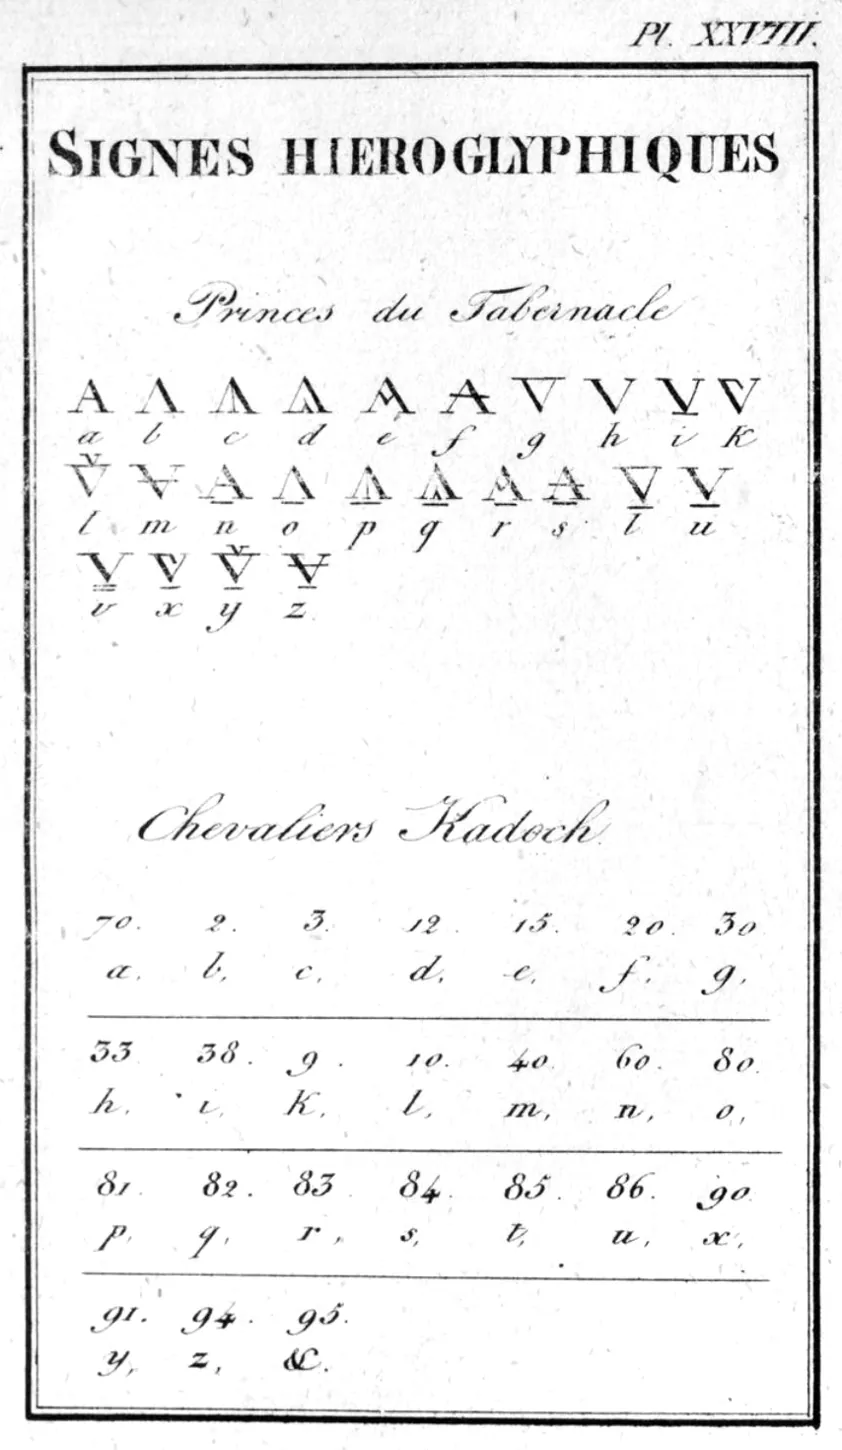 Pl. XXVIII.
SIGNES HIEROGLYPHIQUES
Princes du Tabernacle
a b c d e f g h i K
l m n o p q r s t u
v x y z
Chevaliers Kadoch
70. 2. 3. 12. 15. 20. 30
a. b, c, d, e, f, g,
33 38. 9. 10. 40 60. 80
h, i, K, l, m, n, o,
81 82. 83 84. 85. 86. 90
p, q, r, s, t, u, x,
91. 94. 95.
y, z, &.